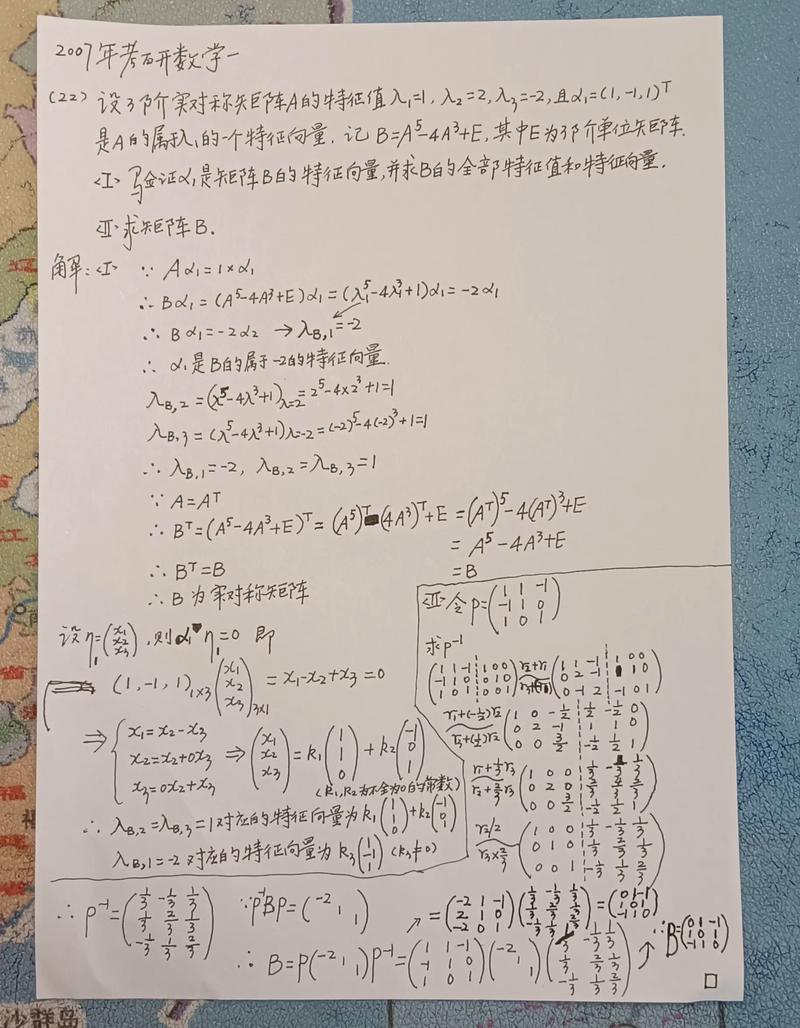 2007年考研数学一
(22) 设3阶实对称矩阵A的特征值λ₁=1, λ₂=2, λ₃=-2, 且α₁=(1,-1,1)ᵀ
是A的属于λ₁的一个特征向量. 记 B=A⁵-4A³+E, 其中E为3阶单位矩阵.
<I> 验证α₁是矩阵B的特征向量,并求B的全部特征值和特征向量.
<II> 求矩阵B.
解: <I> ∵ Aα₁=1×α₁
∴ Bα₁=(A⁵-4A³+E)α₁=(λ₁⁵-4λ₁³+1)α₁=-2α₁
∴ Bα₁=-2α₂ → λ_B,₁=-2
∴ α₁是B的属于-2的特征向量.
λ_B,₂=(λ⁵-4λ³+1)_λ=2=2⁵-4×2³+1=1
λ_B,₃=(λ⁵-4λ³+1)_λ=-2=(-2)⁵-4(-2)³+1=1
∴ λ_B,₁=-2, λ_B,₂=λ_B,₃=1
∵ A=Aᵀ
∴ Bᵀ=(A⁵-4A³+E)ᵀ=(A⁵)ᵀ-(4A³)ᵀ+E=(Aᵀ)⁵-4(Aᵀ)³+E
= A⁵-4A³+E
∴ Bᵀ=B
=B
∴ B 为实对称矩阵
设η₁=(x₁ x₂ x₃), 则α₁ᵀη₁=0 即
(1,-1,1)₁ₓ₃ (x₁ x₂ x₃)₃ₓ₁ = x₁-x₂+x₃=0
⇒ { x₁=x₂-x₃
x₂=x₂+0x₃ ⇒ (x₁ x₂ x₃) = k₁(1 1 0) + k₂(-1 0 1)
x₃=0x₂+x₃
(k₁,k₂为不全为0的常数)
∴ λ_B,₂=λ_B,₃=1对应的特征向量为k₁(1 1 0)+k₂(-1 0 1)
λ_B,₁=-2对应的特征向量为k₃(1 -1 1) (k₃≠0)
<II> 令P=(1 1 -1
-1 1 0
1 0 1)
求P⁻¹
(1 1 -1 ¦ 1 0 0
-1 1 0 ¦ 0 1 0
1 0 1 ¦ 0 0 1)
r₂+r₁
(1 1 -1 ¦ 1 0 0
0 2 -1 ¦ 1 1 0
0 -1 2 ¦ -1 0 1)
r₁+(-½)r₂
r₃+(½)r₂
(1 0 -½ ¦ ½ -½ 0
0 2 -1 ¦ 1 1 0
0 0 3/2 ¦ -½ ½ 1)
r₁+⅓r₃
r₂+⅔r₃
(1 0 0 ¦ ⅓ -⅓ ⅓
0 2 0 ¦ ⅔ 4/3 ⅔
0 0 3/2 ¦ -½ ½ 1)
r₂/2
r₃×⅔
(1 0 0 ¦ ⅓ -⅓ ⅓
0 1 0 ¦ ⅓ ⅔ ⅓
0 0 1 ¦ -⅓ ⅓ ⅔)
∴ P⁻¹=(⅓ -⅓ ⅓
⅓ ⅔ ⅓
-⅓ ⅓ ⅔)
∵ P⁻¹BP=(-2 1 1)
∴ B=P(-2 1 1)P⁻¹=(1 1 -1
-1 1 0
1 0 1)(-2 1 1)(⅓ -⅓ ⅓
⅓ ⅔ ⅓
-⅓ ⅓ ⅔)
=(-2 1 -1
2 1 0
-2 0 1)(⅓ -⅓ ⅓
⅓ ⅔ ⅓
-⅓ ⅓ ⅔)=(0 1 -1
1 0 1
-1 1 0)
∴ B=(0 1 -1
1 0 1
-1 1 0)
□
福
沙群岛